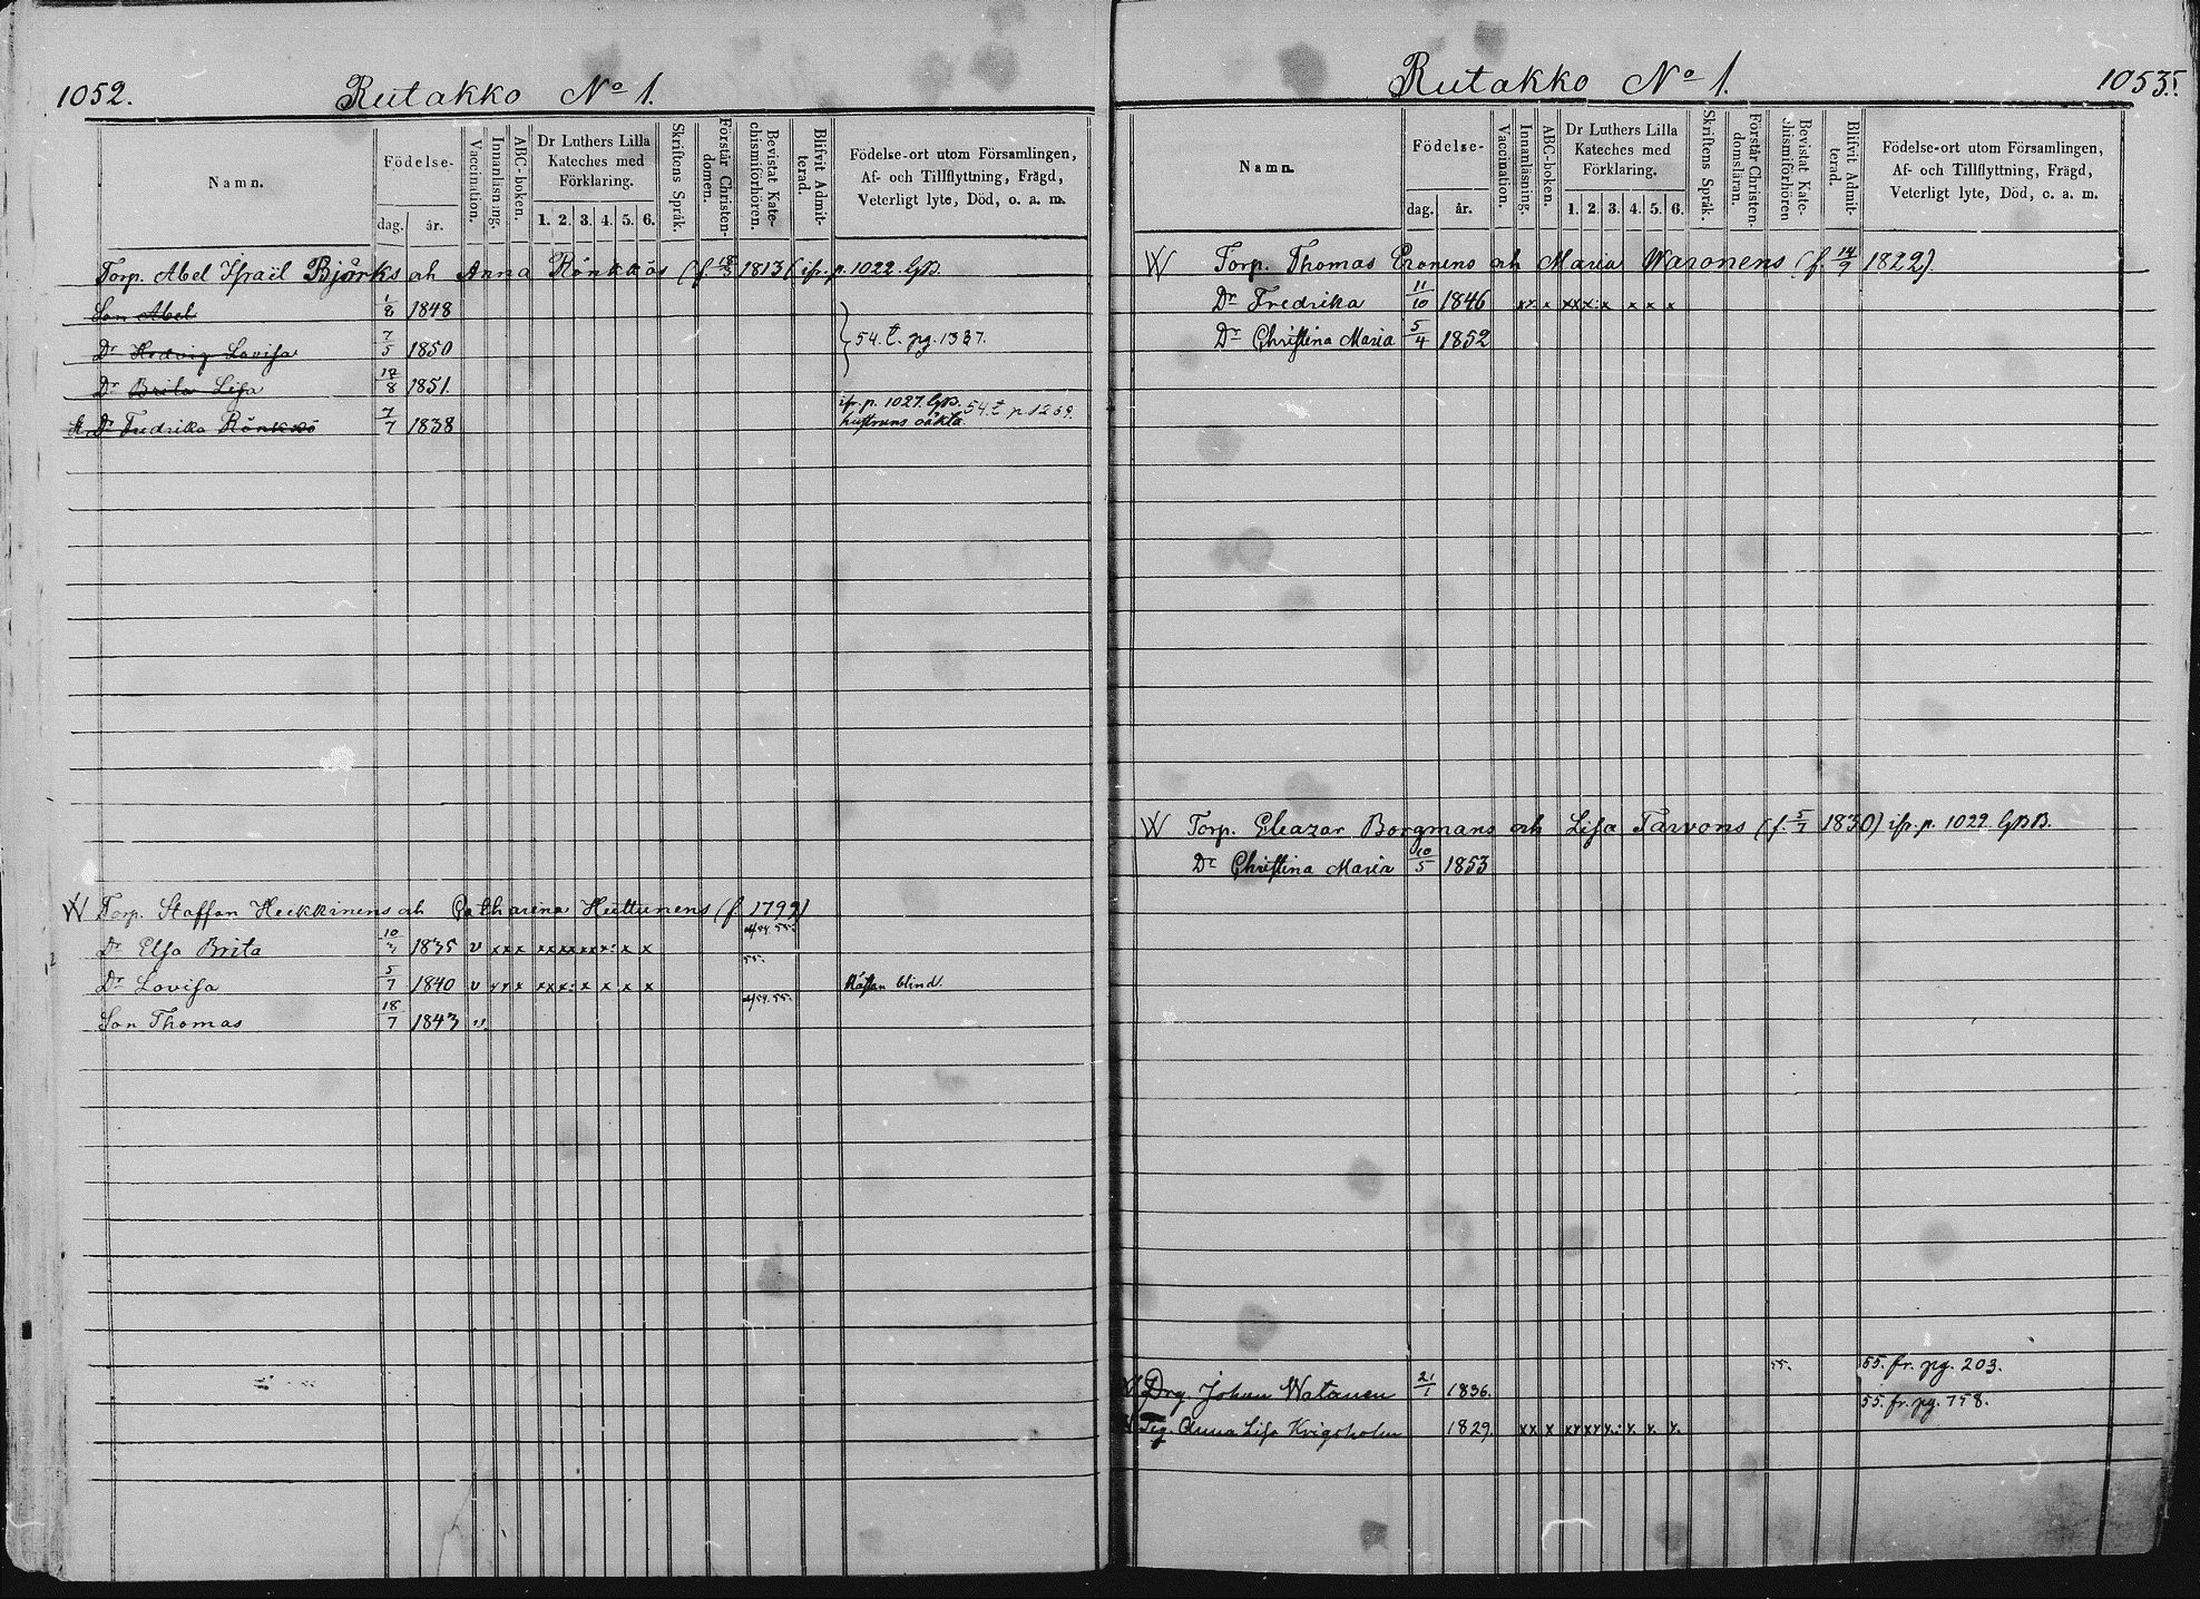 1052.
Rutakko No 1.
Namn.
Födelse-
dag.
år.
Vaccination.
Innanläsning.
ABC-boken.
Dr Luthers Lilla
Kateches med
Förklaring.
1. 2. 3. 4. 5. 6.
Skriftens Språk.
Förstår Christen-
domen.
Bevistat Kate-
chismiförhören.
Blifvit Admit-
terad.
Födelse-ort utom Församlingen,
Af- och Tillflyttning, Frägd,
Veterligt lyte, Död, o. a. m.
Torp. Abel Israël Björks och Anna Rönkkös (f. 18/3 1813 (ifr. p. 1022. GB.
Son Abel 1/8 1848
Dr Hedvig Lovisa 7/5 1850 54. t. pg. 1337.
Dr Brita Lisa 8 1851.
ifr. p. 1027. GB. 54. t. p 1269.
Dr Fredrika Rönkkö 7/7 1838 hustruns oäkta
W Torp. Staffan Heikkinens och Catharina Huttunens (f. 1799)
Dr Elsa Brita 10/3 1835 v x x x x x x x x x: x x
55.
Dr Lovisa 5/7 1840 v x x x x x x: x x x x Nästan blind.
54. 55.
Son Thomas 18/7 1843 v.
Rutakko No 1.
1053.
Namn.
Födelse-
dag.
år.
Vaccination.
Innanläsning.
ABC-boken.
Dr Luthers Lilla
Kateches med
Förklaring.
1. 2. 3. 4. 5. 6.
Skriftens Språk.
Förstår Christen-
domsläran.
Bevistat Kate-
chismiförhören
Blifvit Admit-
terad.
Födelse-ort utom Församlingen,
Af- och Tillflyttning, Frägd,
Veterligt lyte, Död, o. a. m.
W Torp. Thomas Eronens och Maria Waronens (f. 14/9 1822).
Dr Fredrika 11/10 1846 x x x x x x: x x x x
Dr Christina Maria 5/4 1852
W Torp. Eleazar Borgmans och Lisa Tarvons (f. 5/7 1830) ifr. p. 1022 GBB.
Dr Christina Maria 10/5 1853
55. 55. fr. pg. 203.
Drg Johan Watanen 21/1 1836.
55. fr. pg. 758.
Pig. Anna Lisa Krigsholm 1829. x x x x x x x x: x. x. x.